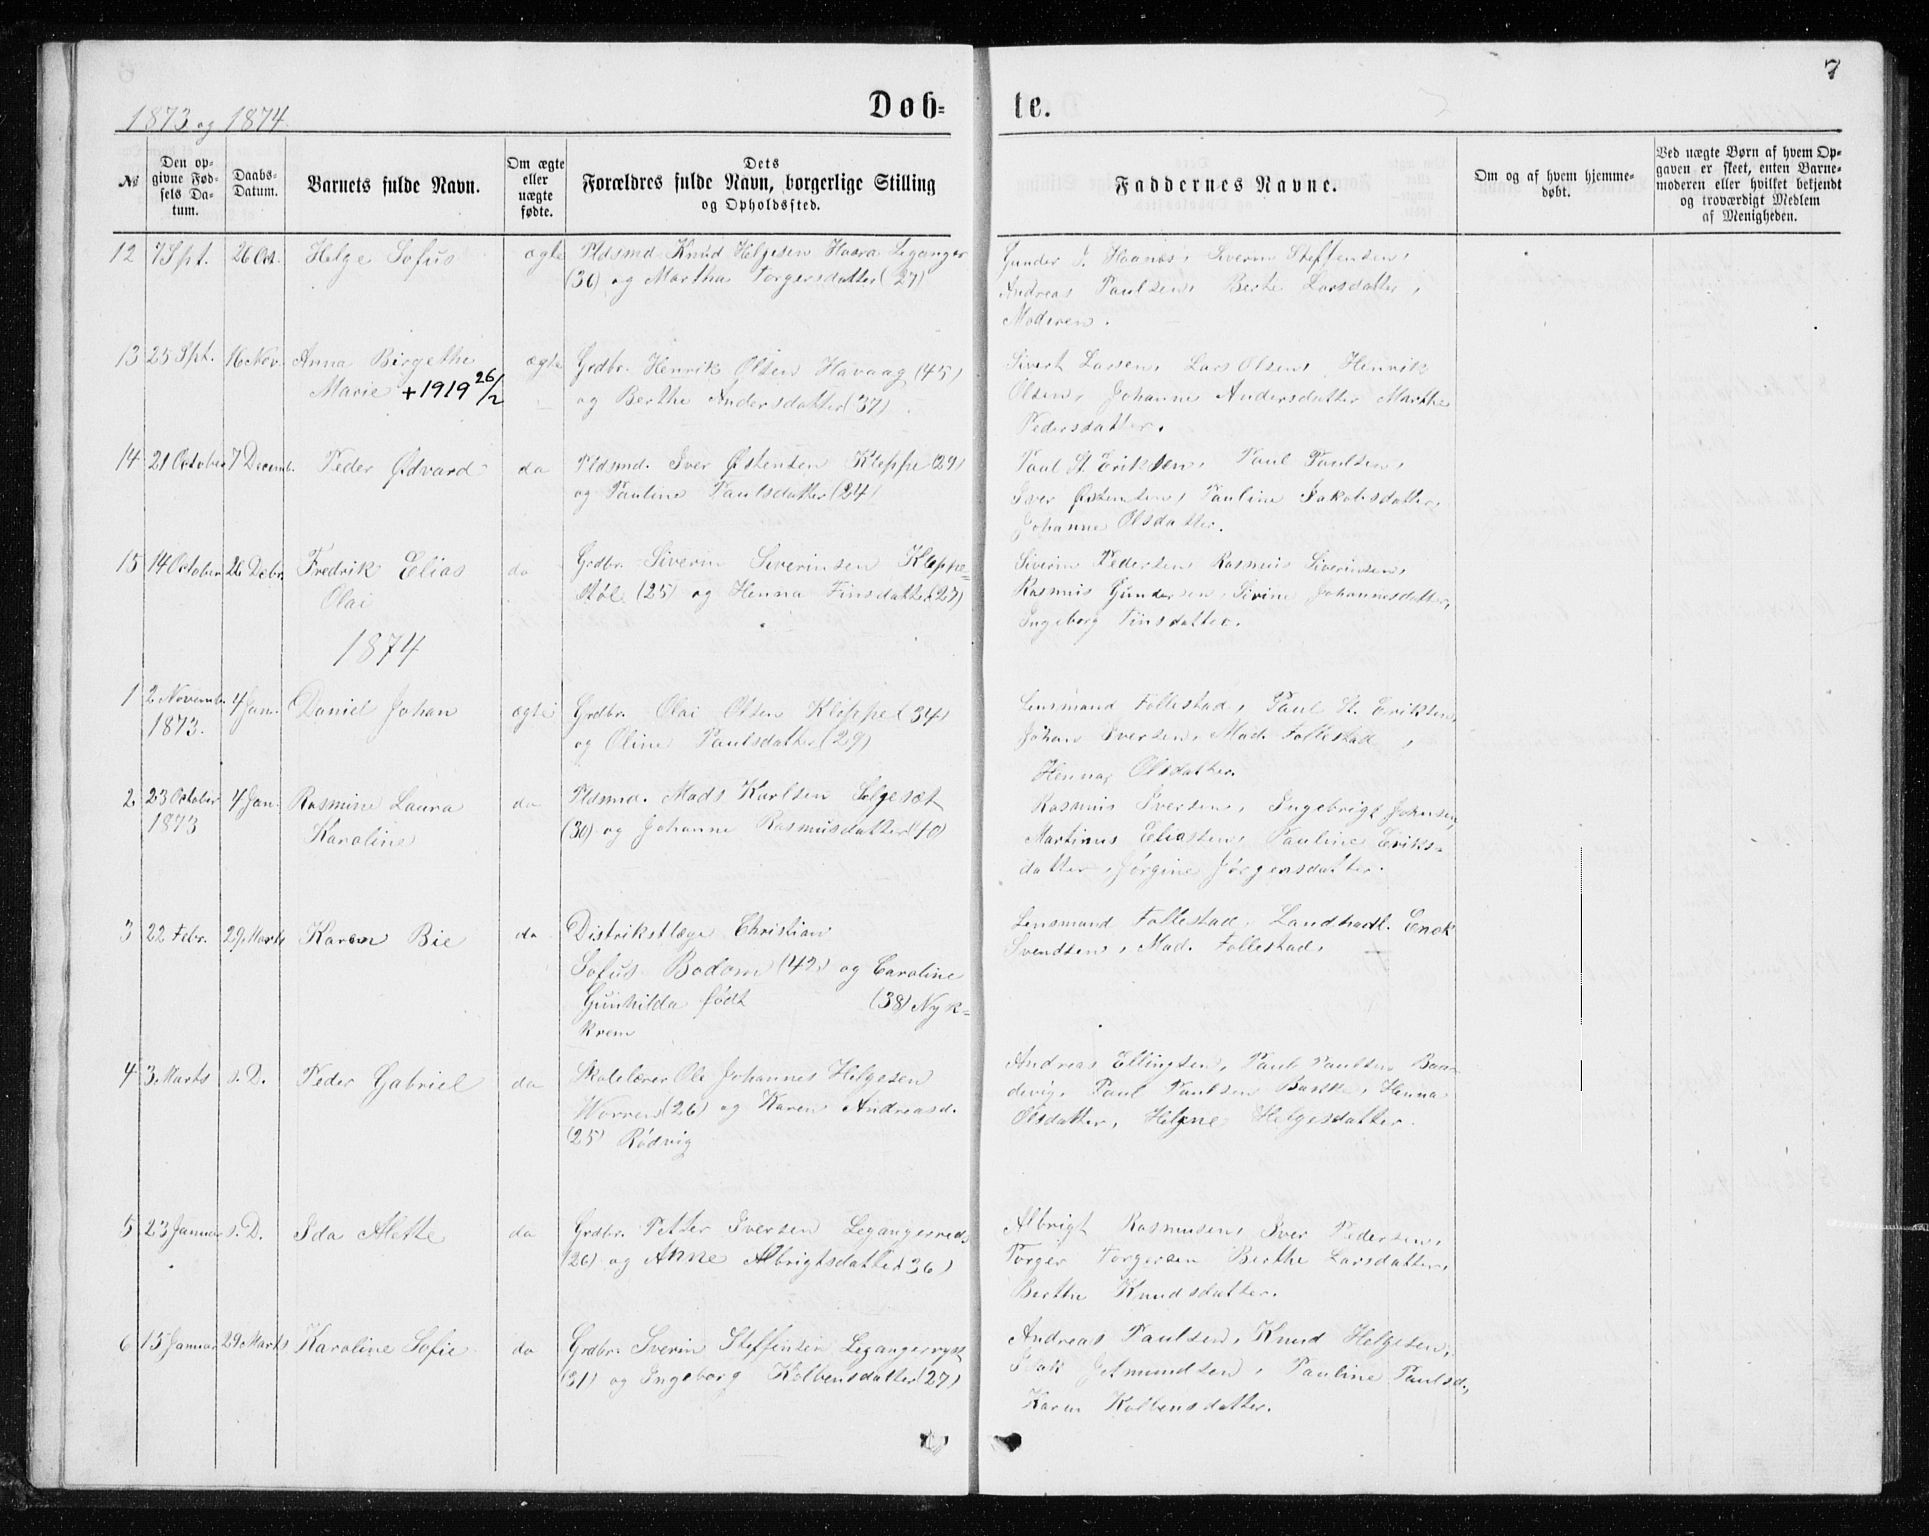 7
1873 og 1874.
Døb-
te.
№
Den op-
givne Fød-
sels Da-
tum.
Daabs-
Datum.
Barnets fulde Navn.
Om ægte
eller
uægte
fødte.
Dets
Forældres fulde Navn, borgerlige Stilling
og Opholdssted.
Faddernes Navne.
Om og af hvem hjemme-
døbt.
Ved uægte Børn af hvem Op-
gaven er skeet, enten Barne-
moderen eller hvilket bekjendt
og troværdigt Medlem
af Menigheden.
12 7 Spt. 26 Oct. Helge Sofus ægte Pldsmd. Knud Helgesen Haara Leganger
(36) og Martha Torgersdatter (27)
Gunder J. Haanæs, Severin Steffensen,
Andreas Paulsen, Berte Larsdatter,
Moderen.
13 25 Spt. 16 Nov. Anna Birgethe ægte Grdbr. Henrik Olsen Havaag (45)
Marie +1919 26/2 og Berthe Andersdatter (37)
Sivert Larsen, Lars Olsen, Henrik
Olsen, Johanne Andersdatter Marthe
Pedersdatter.
14 21 October 7 Decemb. Peder Edvard do Pldsmd. Iver Østensen Kleppe (29)
og Pauline Paulsdatter (24)
Paul St. Eriksen, Paul Paulsen,
Iver Østensen, Pauline Jakobsdatter,
Johanne Olsdatter.
15 14 October 26 Debr. Fredrik Elias do Grdbr. Siverin Siverinsen Kleppe-
Olai støl (25) og Henna Finsdatter (27)
Siverin Pedersen, Rasmus Siverinsen,
Rasmus Gundersen, Sirine Johannesdatter,
Ingeborg Finsdatter.
1874
1 2 Novemb. 4 Jan. Daniel Johan ægte Grdbr. Olai Olsen Kleppe (34)
1873. og Oline Paulsdatter (29)
Lensmand Follestad, Paul St. Eriksen,
Johan Iversen, Mad. Follestad,
Henna Olsdatter.
2 23 October 4 Jan. Rasmine Laura do Pldsmd. Mads Karlsen Selgesæt
1873 Karoline (30) og Johanne Rasmusdatter (40)
Rasmus Iversen, Ingebrigt Johnsen,
Martinus Eliassen, Pauline Eriks-
datter, Jørgine Jørgensdatter.
3 22 Febr. 29 Marts Karen Bie do Distriktslæge Christian
Sofus Bodom (42) og Caroline
Gunhilda født (38) Nyk-
krem
Lensmand Follestad, Landhadl. Enok
Svendsen, Mad. Follestad,
4 3. Marts s. D. Peder Gabriel do Skolelærer Ole Johannes Helgesen
Worren (26) og Karen Andreasd.
(25) Rødvig
Andreas Ellingsen, Paul Paulsen Baa-
devig, Paul Paulsen Bakke, Henna
Olsdatter, Helene Helgesdatter.
5 23 Januar s. D. Ida Alette do Grdbr. Petter Iversen Legangersred,
(26) og Anne Albrigtsdatter (36)
Albrigt Rasmusen, Iver Pedersen,
Torger Torgersen Berthe Larsdatter,
Berthe Knudsdatter.
6 15 Januar 29 Marts Karoline Sofie do Grdbr. Sverin Steffensen Legangersryst
(31) og Ingeborg Kolbensdatter (27)
Andreas Paulsen, Knud Helgesen,
Isak Jetmundsen, Pauline Paulsd.,
Karen Kolbensdatter.